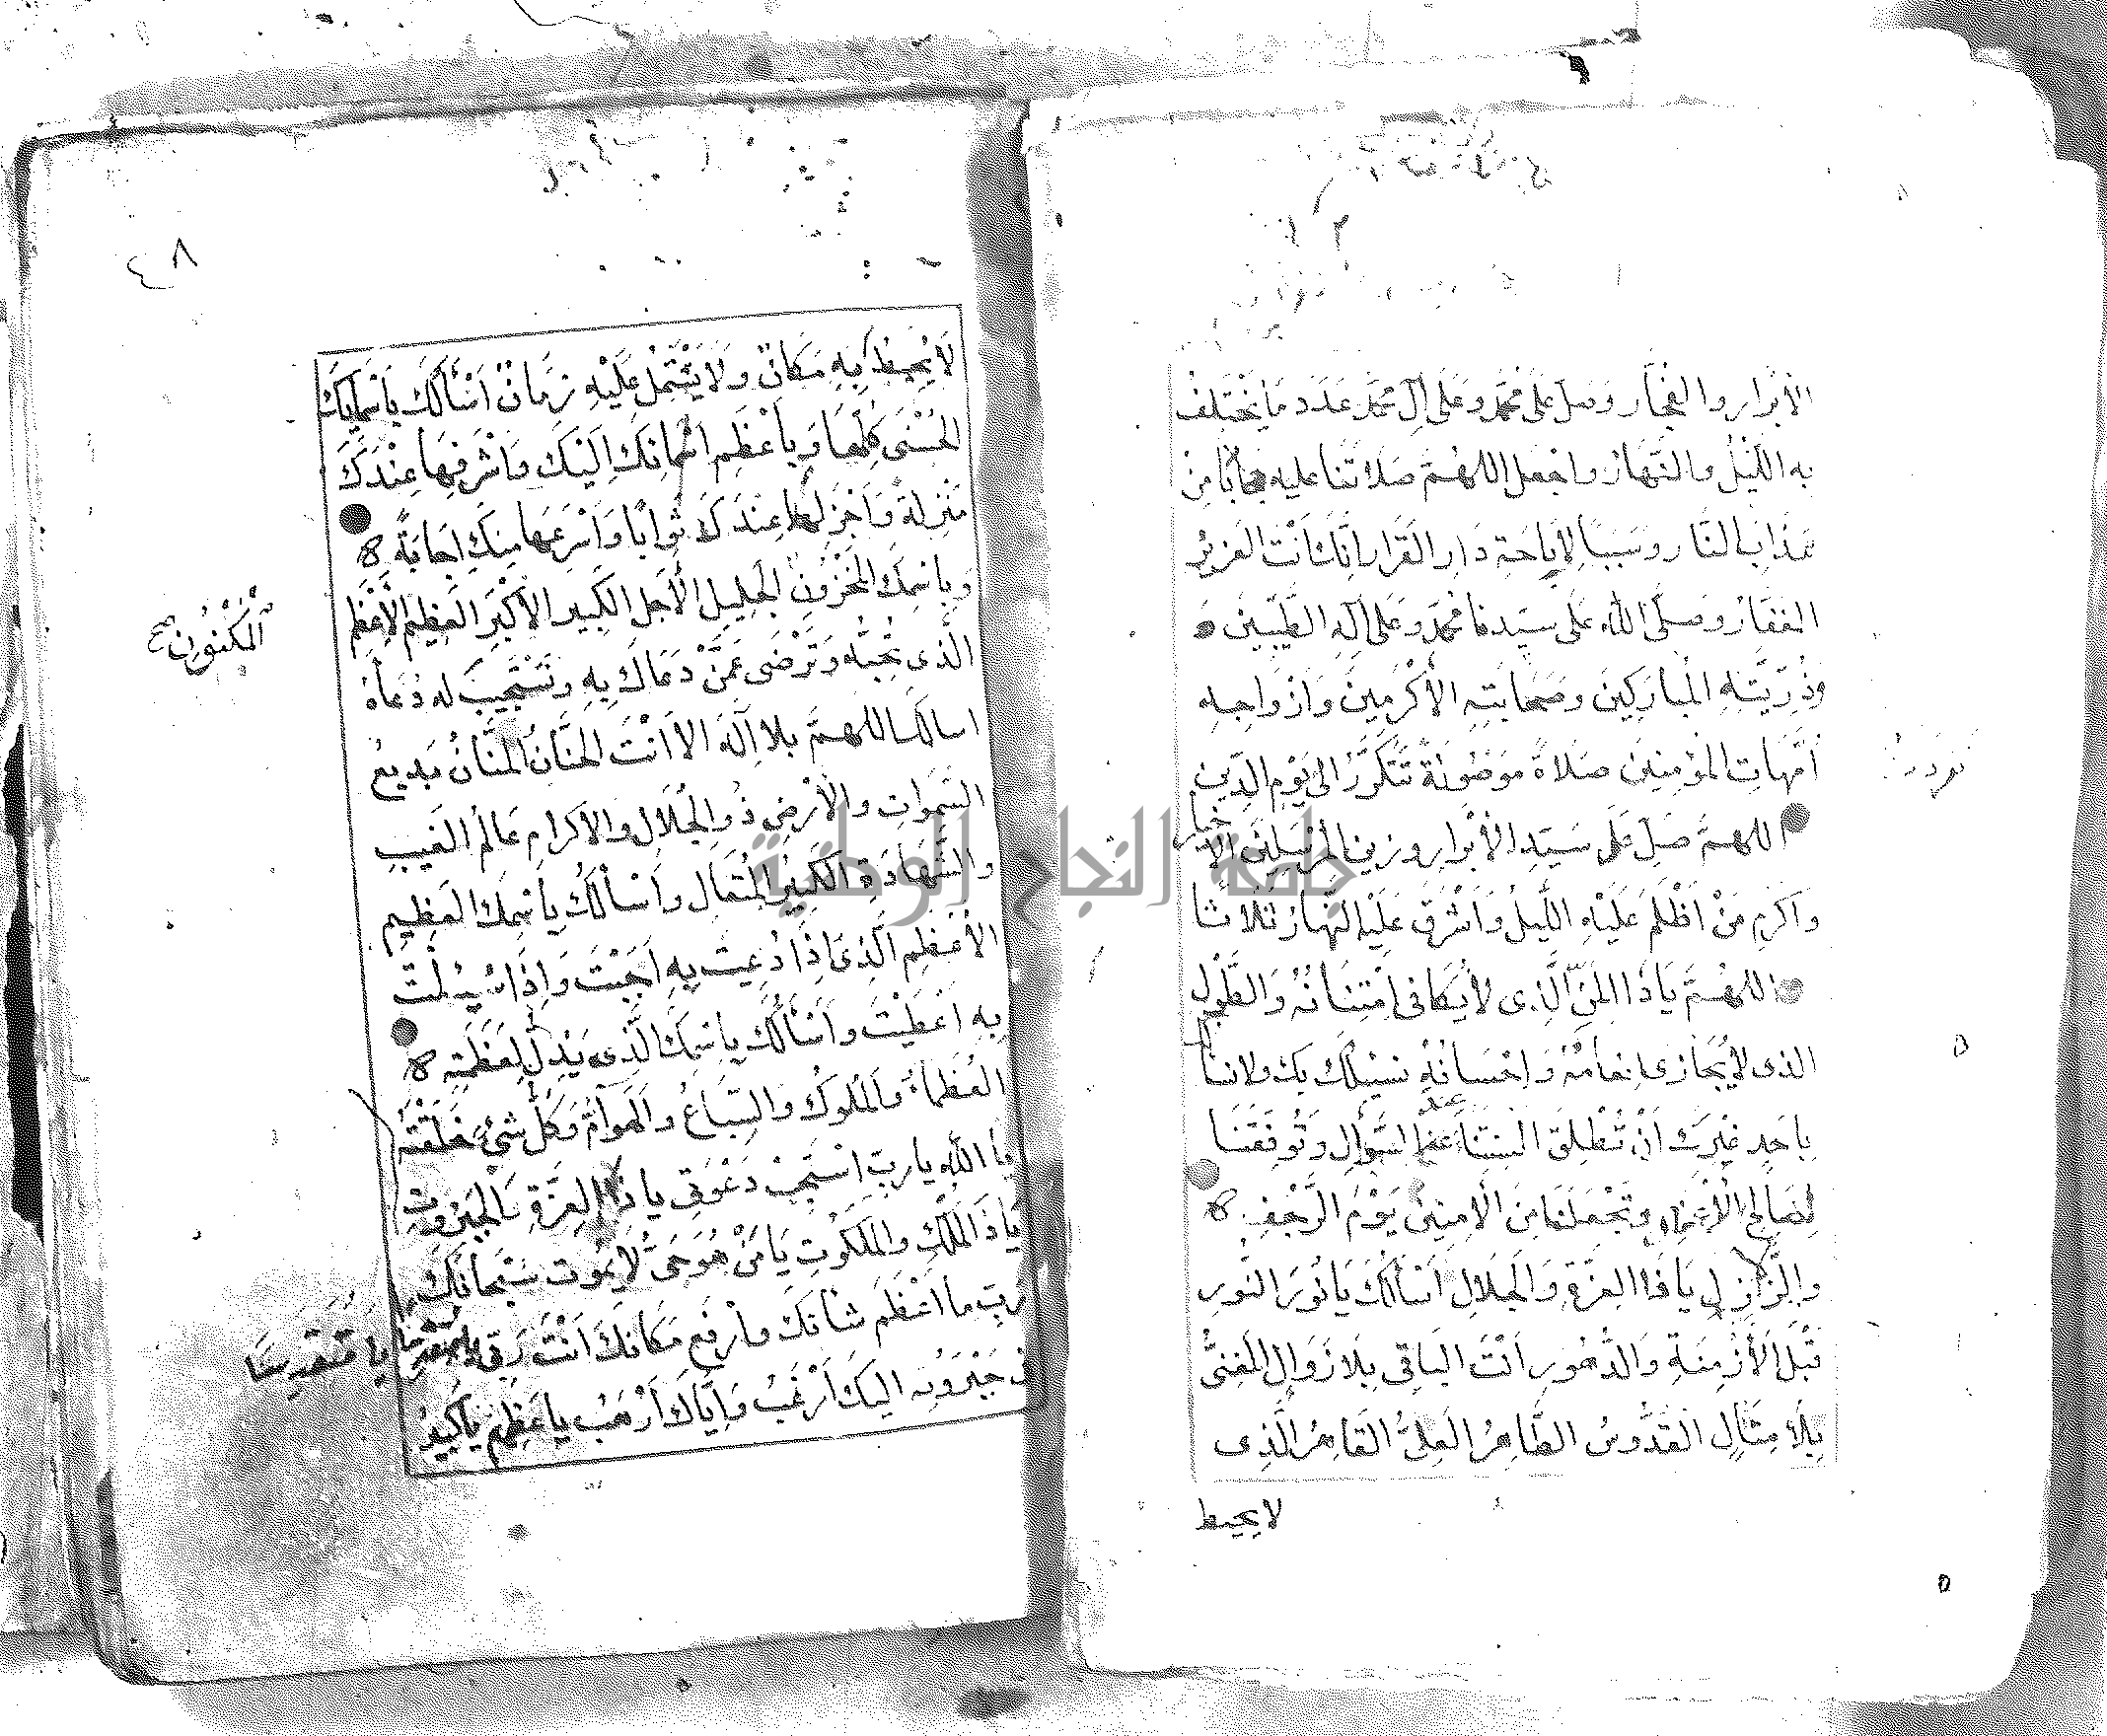 الأبْرارِ والفُجَّار وَصَلِّ عَلَى مُحَمَّدٍ وَعَلَى آلِ مُحَمَّدٍ عَدَدَ مَا يَخْتَلِفُ
به اللَّيْلُ والنَّهَارُ واجعل اللهُمَّ صَلَاتَنا عليه حِجَابًا مِنْ
عَذَابِ النَّارِ وسَبَبًا لِإِبَاحَةِ دَارِ القَرَارِ إنَّكَ أَنْتَ العَزِيزُ
الغَفَّارُ وَصَلَّى اللهُ عَلَى سَيِّدِنَا مُحَمَّدٍ وَعَلَى آلِهِ الطَّيِّبِينَ
وَذُرِّيَّتِهِ المُبَارَكِينَ وصَحَابَتِهِ الأَكْرَمِينَ وَأَزْوَاجِهِ
أُمَّهَاتِ المُؤْمِنِينَ صَلَاةً مَوْصُولَةً تَتَكَرَّرُ إلى يَوْمِ الدِّينِ
اللهُمَّ صَلِّ عَلَى سَيِّدِ الأَبْرَارِ وزين المُرْسَلِينَ الأخيار
وَأَكْرَمِ مَنْ أَظْلَمَ عَلَيْهِ اللَّيْلُ وَأَشْرَقَ عَلَيْهِ النَّهَارُ ثَلَاثًا
اللهُمَّ يَاذَا المَنِّ الَّذِي لَا يُكَافَى امْتِنَانُهُ وَالطَّوْلِ
الذى لَا يُجَازَى إنعَامُهُ وَإِحْسَانُهُ نَسْئَلُكَ بِكَ ولا نسأل
بِأَحَدٍ غَيْرِكَ أَنْ تُطْلِقَ أَلْسِنَتَنَا عند السُّؤَالِ وَتُوَفِّقَنَا
لِصَالِحِ الأَعْمَالِ وتَجْعَلَنَا مِنَ الآمِنِينَ يَوْمَ الرَّجْفِ
والزَّلَازِلِ يَا ذَا العِزَّةِ وَالجَلَالِ أَسْأَلُكَ يَا نُورَ النُّورِ
قَبْلَ الأَزْمِنَةِ وَالدُّهُورِ أَنْتَ البَاقِي بِلَا زَوَالٍ الغَنِيُّ
بِلَا مِثَالٍ القُدُّوسُ الطَّاهِرُ العَلِيُّ القَاهِرُ الَّذِى
لا يحيط
٨٤
لَا يُحِيطُ بِهِ مَكَانٌ وَلَا يَشْتَمِلُ عَلَيْهِ زَمَانٌ أَسْأَلُكَ بِأَسْمَائِكَ
الحُسْنَى كُلِّهَا وَبِأَعْظَمِ أَسْمَائِكَ إِلَيْكَ وَأَشْرَفِهَا عِنْدَكَ
مَنْزِلَةً وَأَجْزَلِهَا عِنْدَكَ ثَوابًا وَأَسْرَعِهَا مِنْكَ إِجَابَةً
وَبِاسْمِكَ المَخْزُونِ الجَلِيلِ الأَجَلِّ الكَبِيرِ الأَكْبَرِ العَظِيمِ الأَعْظَمِ
المَكْنُونِ صح
الَّذِى تُحِبُّهُ وَتَرْضَى عَمَّنْ دَعَاكَ بِهِ وَتَسْتَجِيبُ له دُعَاءَهُ
اسالك اللهمَّ بلا إلَهَ إلا أَنْتَ الحَنَّانُ المَنَّانُ بَدِيعُ
السَّمَوَاتِ والأَرْضِ ذُو الجَلَالِ والإكرامِ عَالِمُ الغَيْبِ
والشَّهَادَةِ الكَبِيرُ المُتَعَالِ وَأَسْأَلُكَ بِاسْمِكَ العَظِيمِ
الأَعْظَمِ الَّذِى إِذَا دُعِيتَ بِهِ أَجَبْتَ وَإِذَا سُئِلْتَ
بِهِ أَعْطَيْتَ وأَسْأَلُكَ بِاسْمِكَ الَّذِى يَذِلُّ لِعَظَمَتِهِ
العُظَمَاءُ وَالمُلُوكُ والسِّبَاعُ والهَوَامُّ وَكُلُّ شَيْءٍ خَلَقْتَهُ
يا اللهُ يا رَبِّ اسْتَجِبْ دَعْوَتِى يا ذَا العِزَّةِ والجَبَرُوتِ
يَا ذَا المُلْكِ والمَلَكُوتِ يَا مَنْ هُوَ حَيٌّ لَا يَمُوت سُبْحَانَكَ
رَبِّ ما أَعْظَمَ شَأْنَكَ وأَرْفَعَ مَكَانَكَ أَنْتَ رَبِّى يا متقدسا
فى جَبَرُوتِهِ إليك أَرْغَبُ وَإِيَّاكَ أَرْهَبُ يا عَظِيمُ يَا كَبِيرُ
جامعة النجاح الوطنية